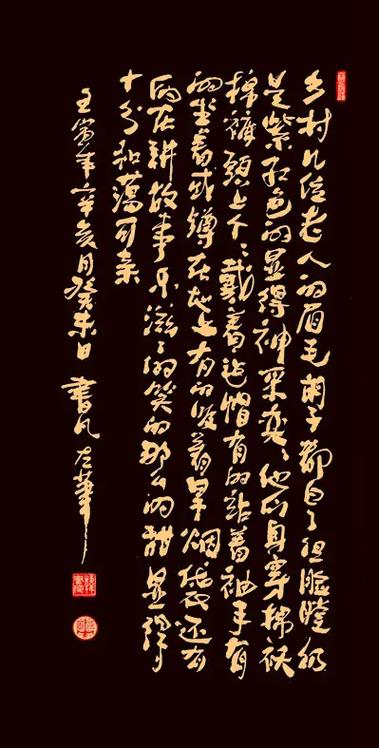 乡村几位老人的眉毛胡子都白了但脸膛仍
是紫红色的显得神采奕々他们身穿棉袄
棉裤头上个々戴着毡帽有的站着袖手有
的坐着或蹲在地上有的吸着旱烟袋还有
的在讲故事乐滋々的笑的那么的甜显得
十分和蔼可亲
壬寅年辛亥月癸未日 書凡左筆